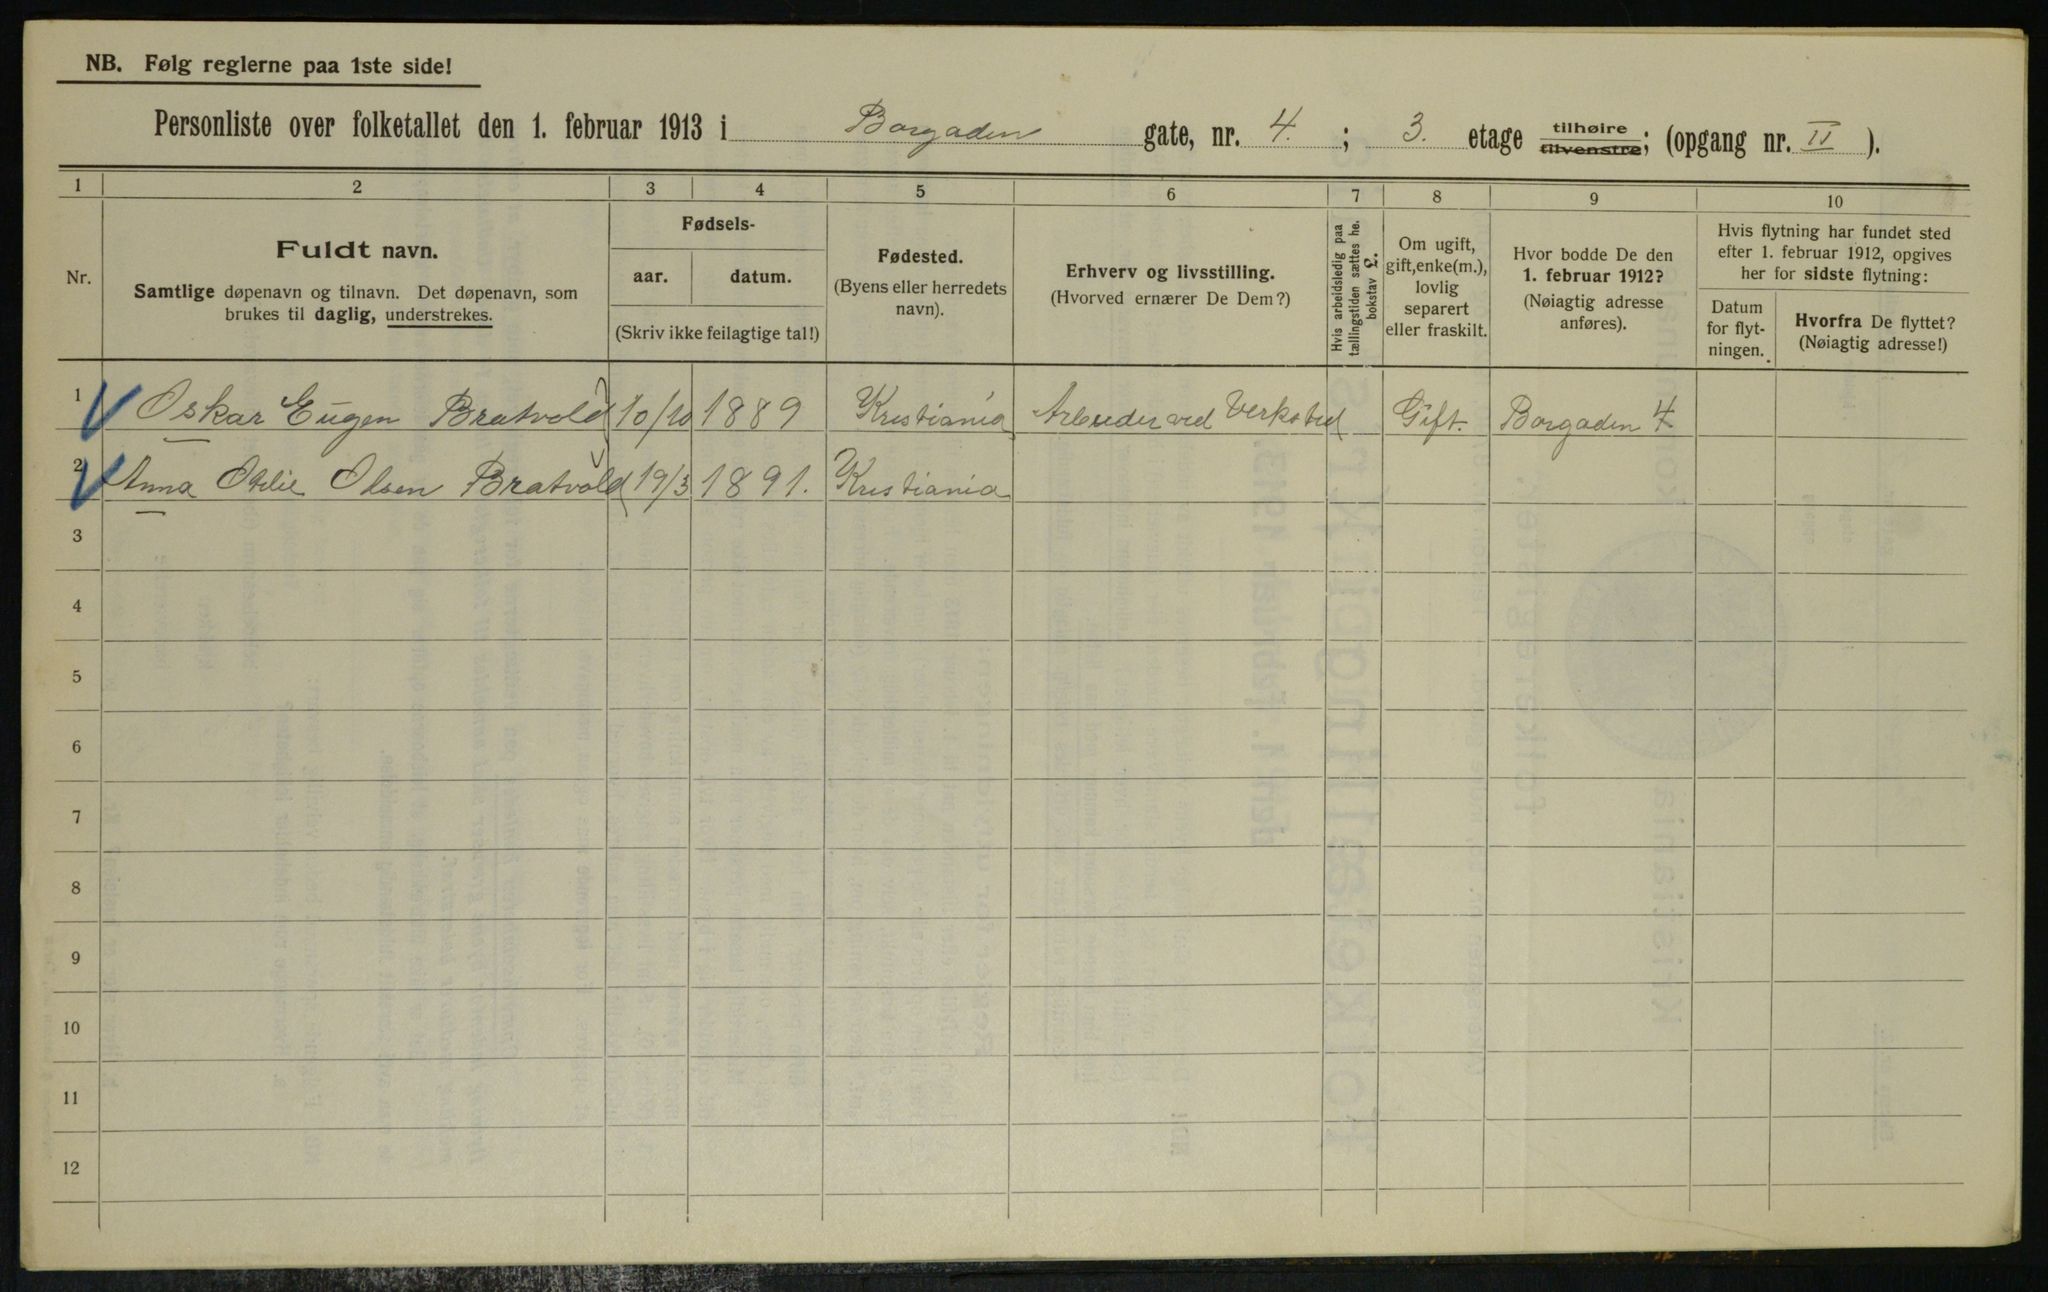 NB. Følg reglerne paa 1ste side!
Personliste over folketallet den 1. februar 1913 i Borgaden gate, nr. 4. ; 3. etage tilhøire tilvenstre; (opgang nr. II ).
1 2 3 4 5 6 7 8 9 10
Nr.
Fuldt navn.
Samtlige døpenavn og tilnavn. Det døpenavn, som
brukes til daglig, understrekes.
Fødsels-
aar. datum.
(Skriv ikke feilagtige tal!)
Fødested.
(Byens eller herredets
navn).
Erhverv og livsstilling.
(Hvorved ernærer De Dem?)
Hvis arbeidsledig paa
tællingstiden sættes he.
bokstav L.
Om ugift,
gift, enke(m.),
lovlig
separert
eller fraskilt.
Hvor bodde De den
1. februar 1912?
(Nøiagtig adresse
anføres).
Hvis flytning har fundet sted
efter 1. februar 1912, opgives
her for sidste flytning:
Datum
for flyt-
ningen.
Hvorfra De flyttet?
(Nøiagtig adresse!)
1 Oskar Eugen Bratvold 10/10 1889 Kristiania Arbeider ved Verksted Gift. Borgaden 4
2 Anna Otelie Olsen Bratvold 19/3 1891. Kristiania
3
4
5
6
7
8
9
10
11
12